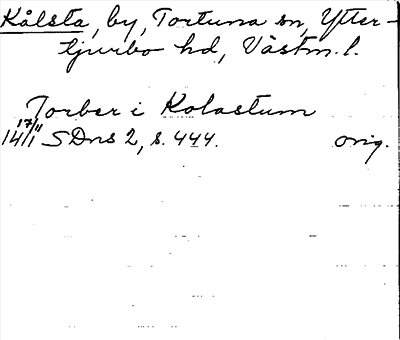 Kålsta, by, Tortuna sn, Ytter-
tjurbo hd, Västm. l.
Torber i Kolastum
17/11
14/1 SDns 2, s. 444. orig.